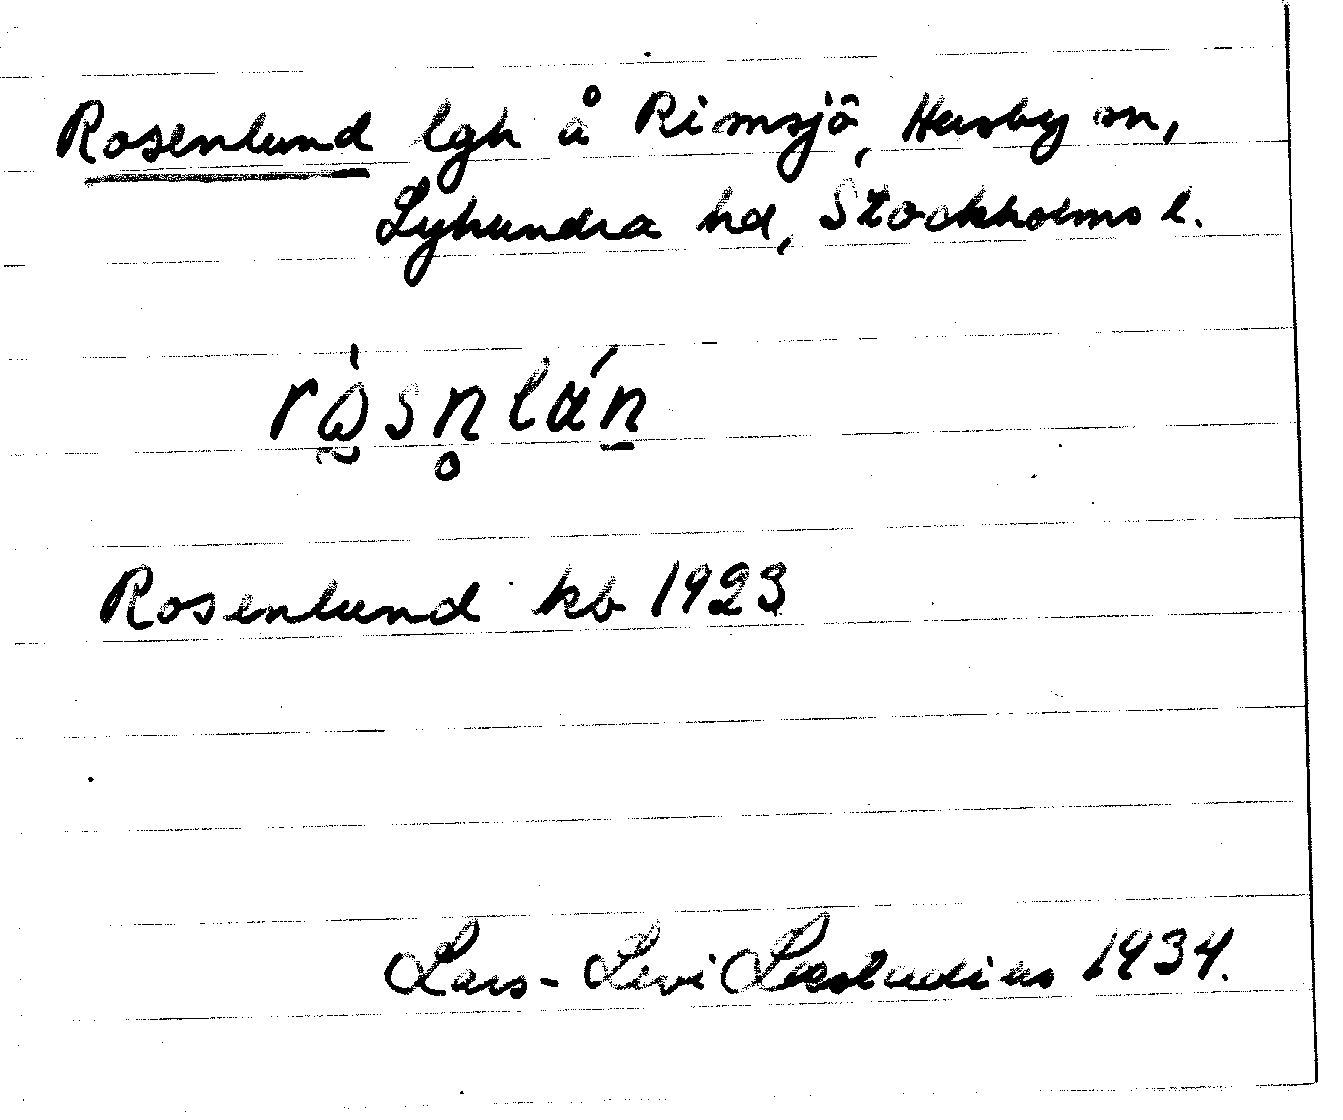 Rosenlund lgh å Rimsjö, Husby sn,
Lyhundra hd, Stockholms l.
rò̰sn̥lán̠
Rosenlund kb 1923
Lars-Levi Læstadius 1934.